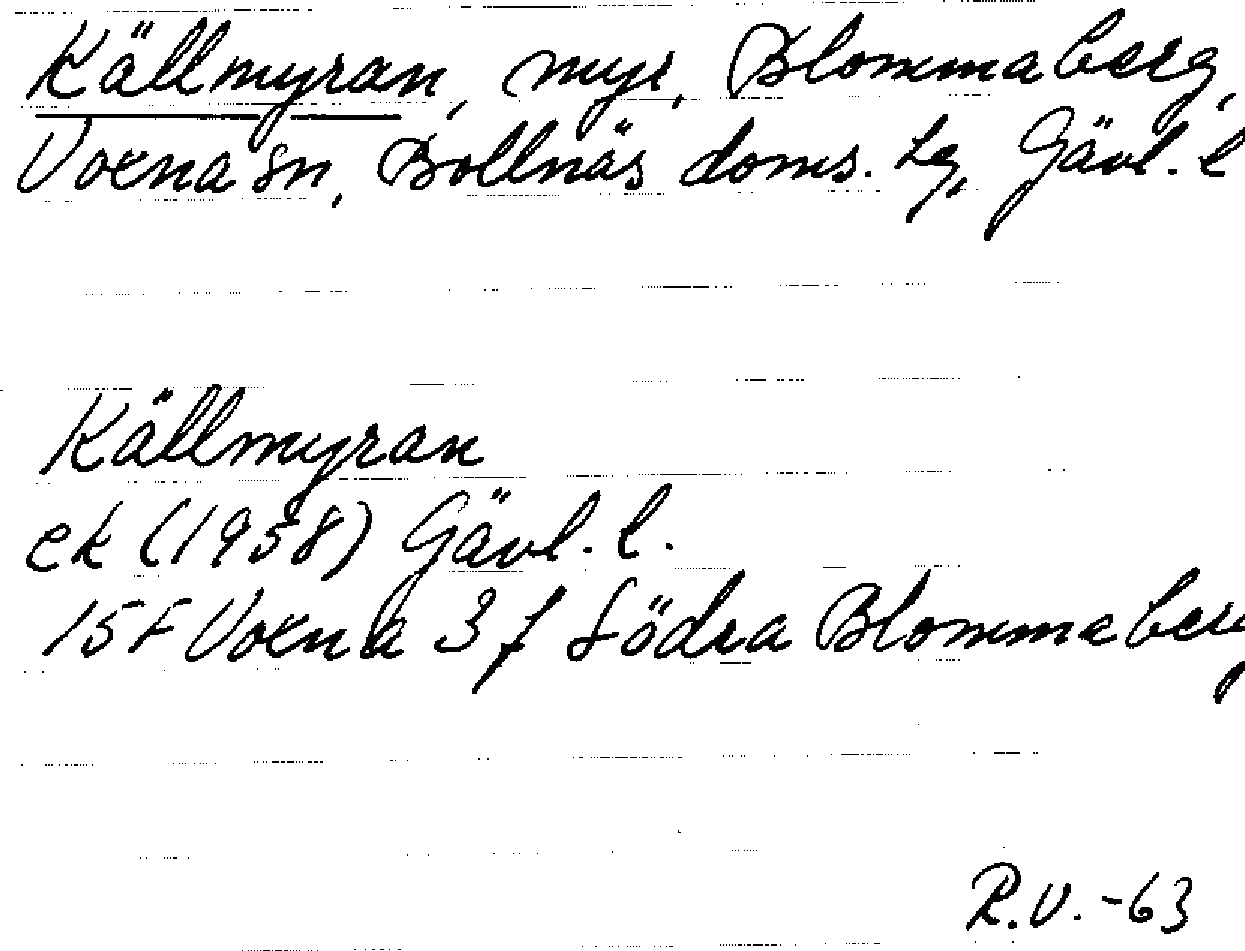 Källmyran, myr, Blommaberg,
Voxna sn, Bollnäs doms. lg, Gävl. l
Källmyran
ek (1958) Gävl. l.
15F Voxna 3f Södra Blommaberg
R.V. -63